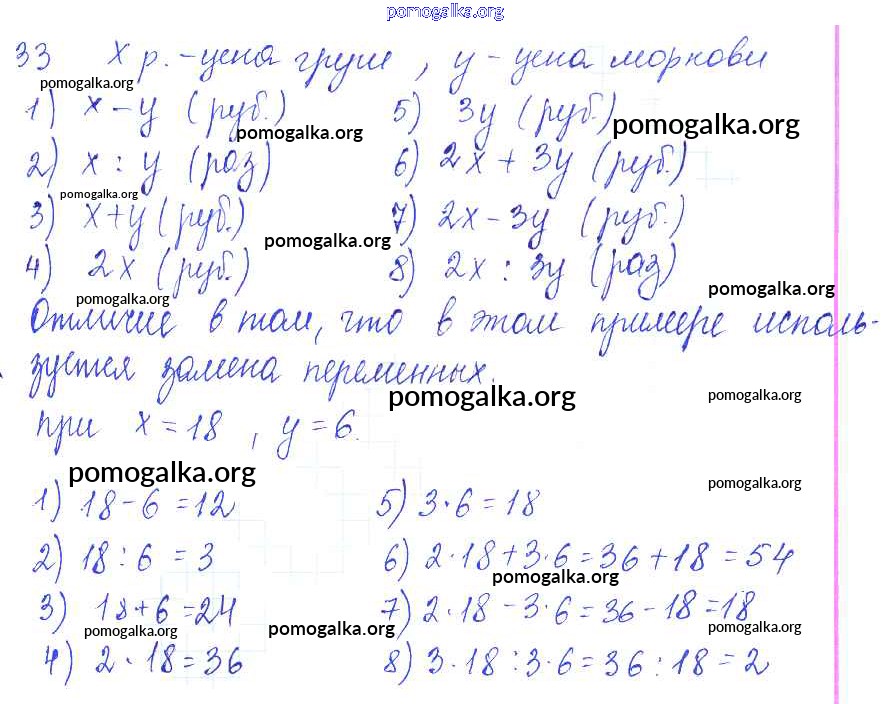 pomogalka.org
33 X р. - цена груш, y - цена моркови
pomogalka.org
1) x - y (руб.) 5) 3y (руб.)
pomogalka.org pomogalka.org
2) x : y (раз) 6) 2x + 3y (руб.)
pomogalka.org
3) x+y (руб.) 7) 2x - 3y (руб.)
pomogalka.org
4) 2x (руб.) 8) 2x : 3y (раз)
pomogalka.org pomogalka.org
Отличие в том, что в этом примере исполь-
зуется замена переменных.
pomogalka.org pomogalka.org
при x = 18, y = 6.
pomogalka.org pomogalka.org
1) 18 - 6 = 12 5) 3 · 6 = 18
2) 18 : 6 = 3 6) 2 · 18 + 3 · 6 = 36 + 18 = 54
pomogalka.org
3) 18 + 6 = 24 7) 2 · 18 - 3 · 6 = 36 - 18 = 18
pomogalka.org pomogalka.org pomogalka.org
4) 2 · 18 = 36 8) 3 · 18 : 3 · 6 = 36 : 18 = 2